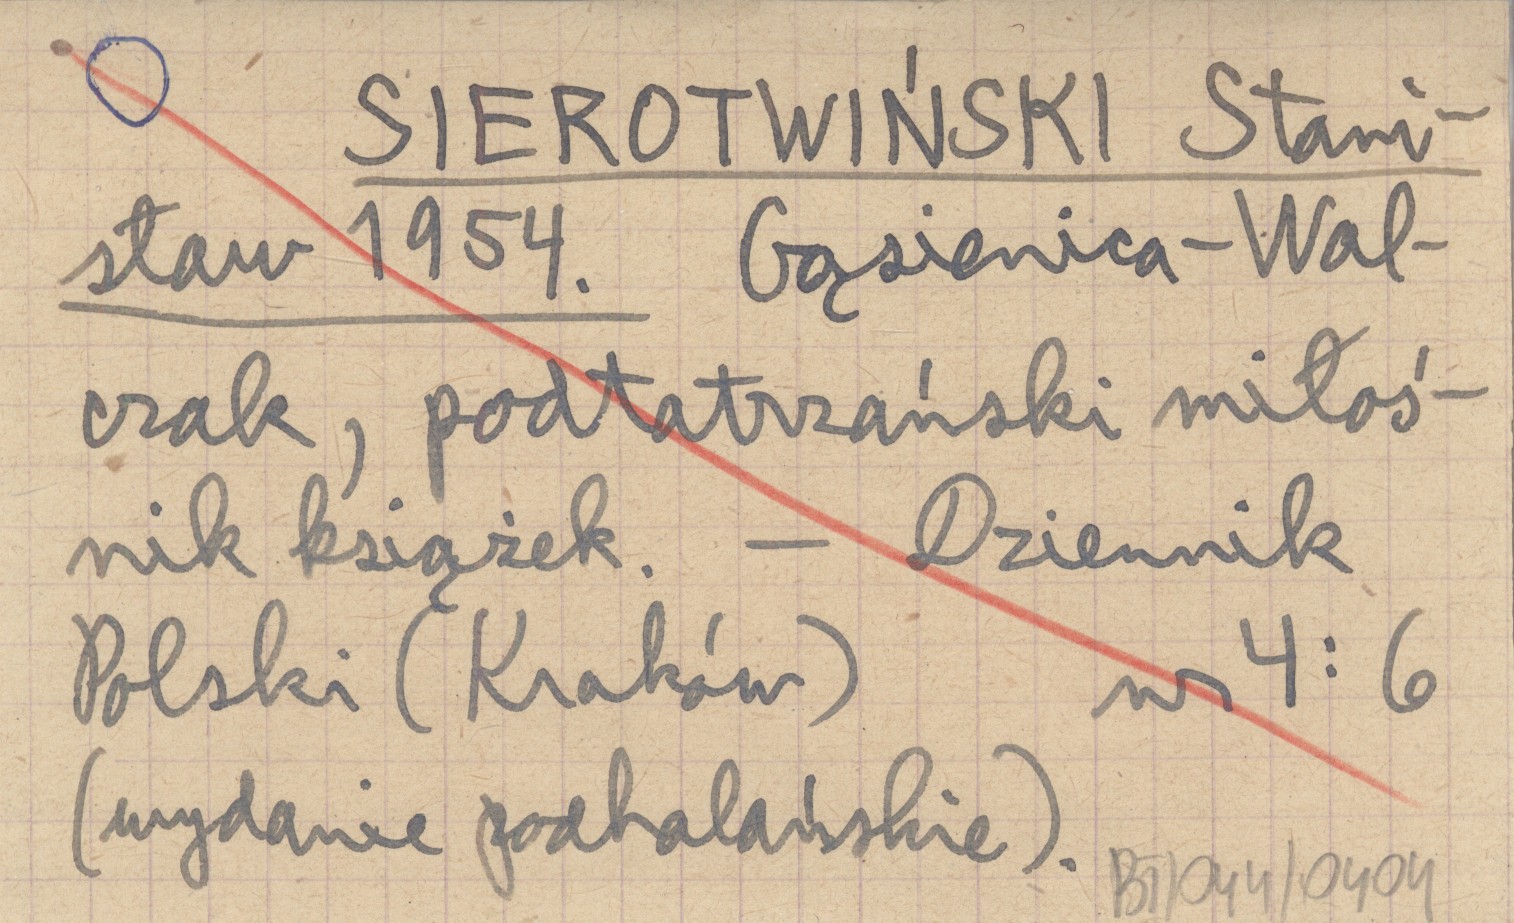 SIEROTWIŃSKI Stani-
sław 1954. Gąsienica-Wal-
czak, podtatrzański miłoś-
nik książek. — Dziennik
Polski (Kraków) nr 4: 6
(wydanie podhalańskie).
BT/044/0404